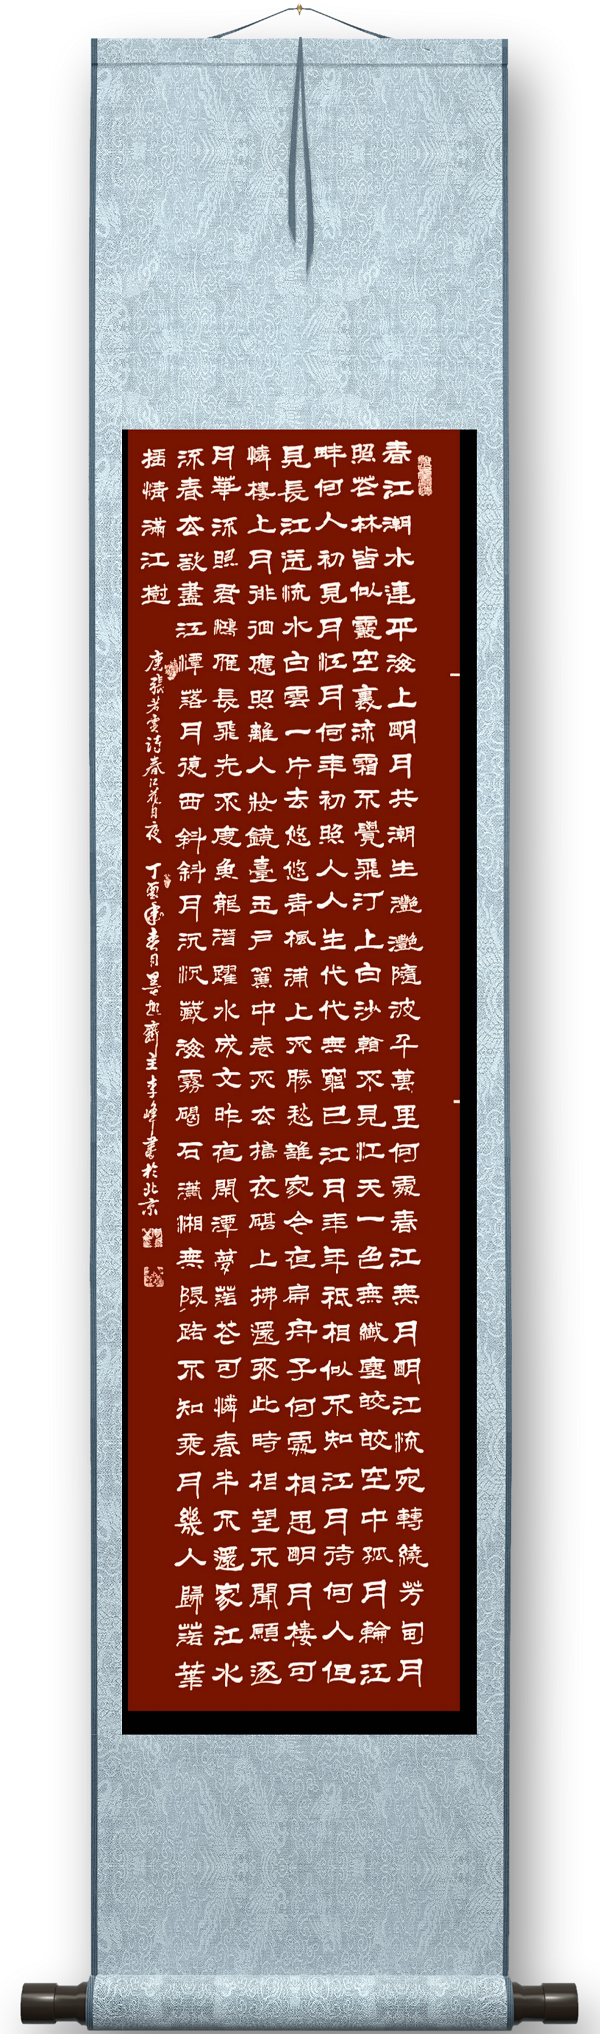 春江潮水連平海上明月共潮生灩灩隨波千萬里何處春江無月明江流宛轉繞芳甸月
照花林皆似霰空裏流霜不覺飛汀上白沙看不見江天一色無纖塵皎皎空中孤月輪江
畔何人初見月江月何年初照人人生代代無窮已江月年年祇相似不知江月待何人但
見長江送流水白雲一片去悠悠青楓浦上不勝愁誰家今夜扁舟子何處相思明月樓可
憐樓上月徘徊應照離人妝鏡臺玉戶簾中卷不去擣衣砧上拂還來此時相望不聞願逐
月華流照君鴻雁長飛光不度魚龍潛躍水成文昨夜閒潭夢落花可憐春半不還家江水
流春去欲盡江潭落月復西斜斜月沉沉藏海霧碣石瀟湘無限路不知乘月幾人歸落葉
搖情滿江樹
唐張若虛詩春江花月夜 丁酉年春月墨齋主李峰書於北京